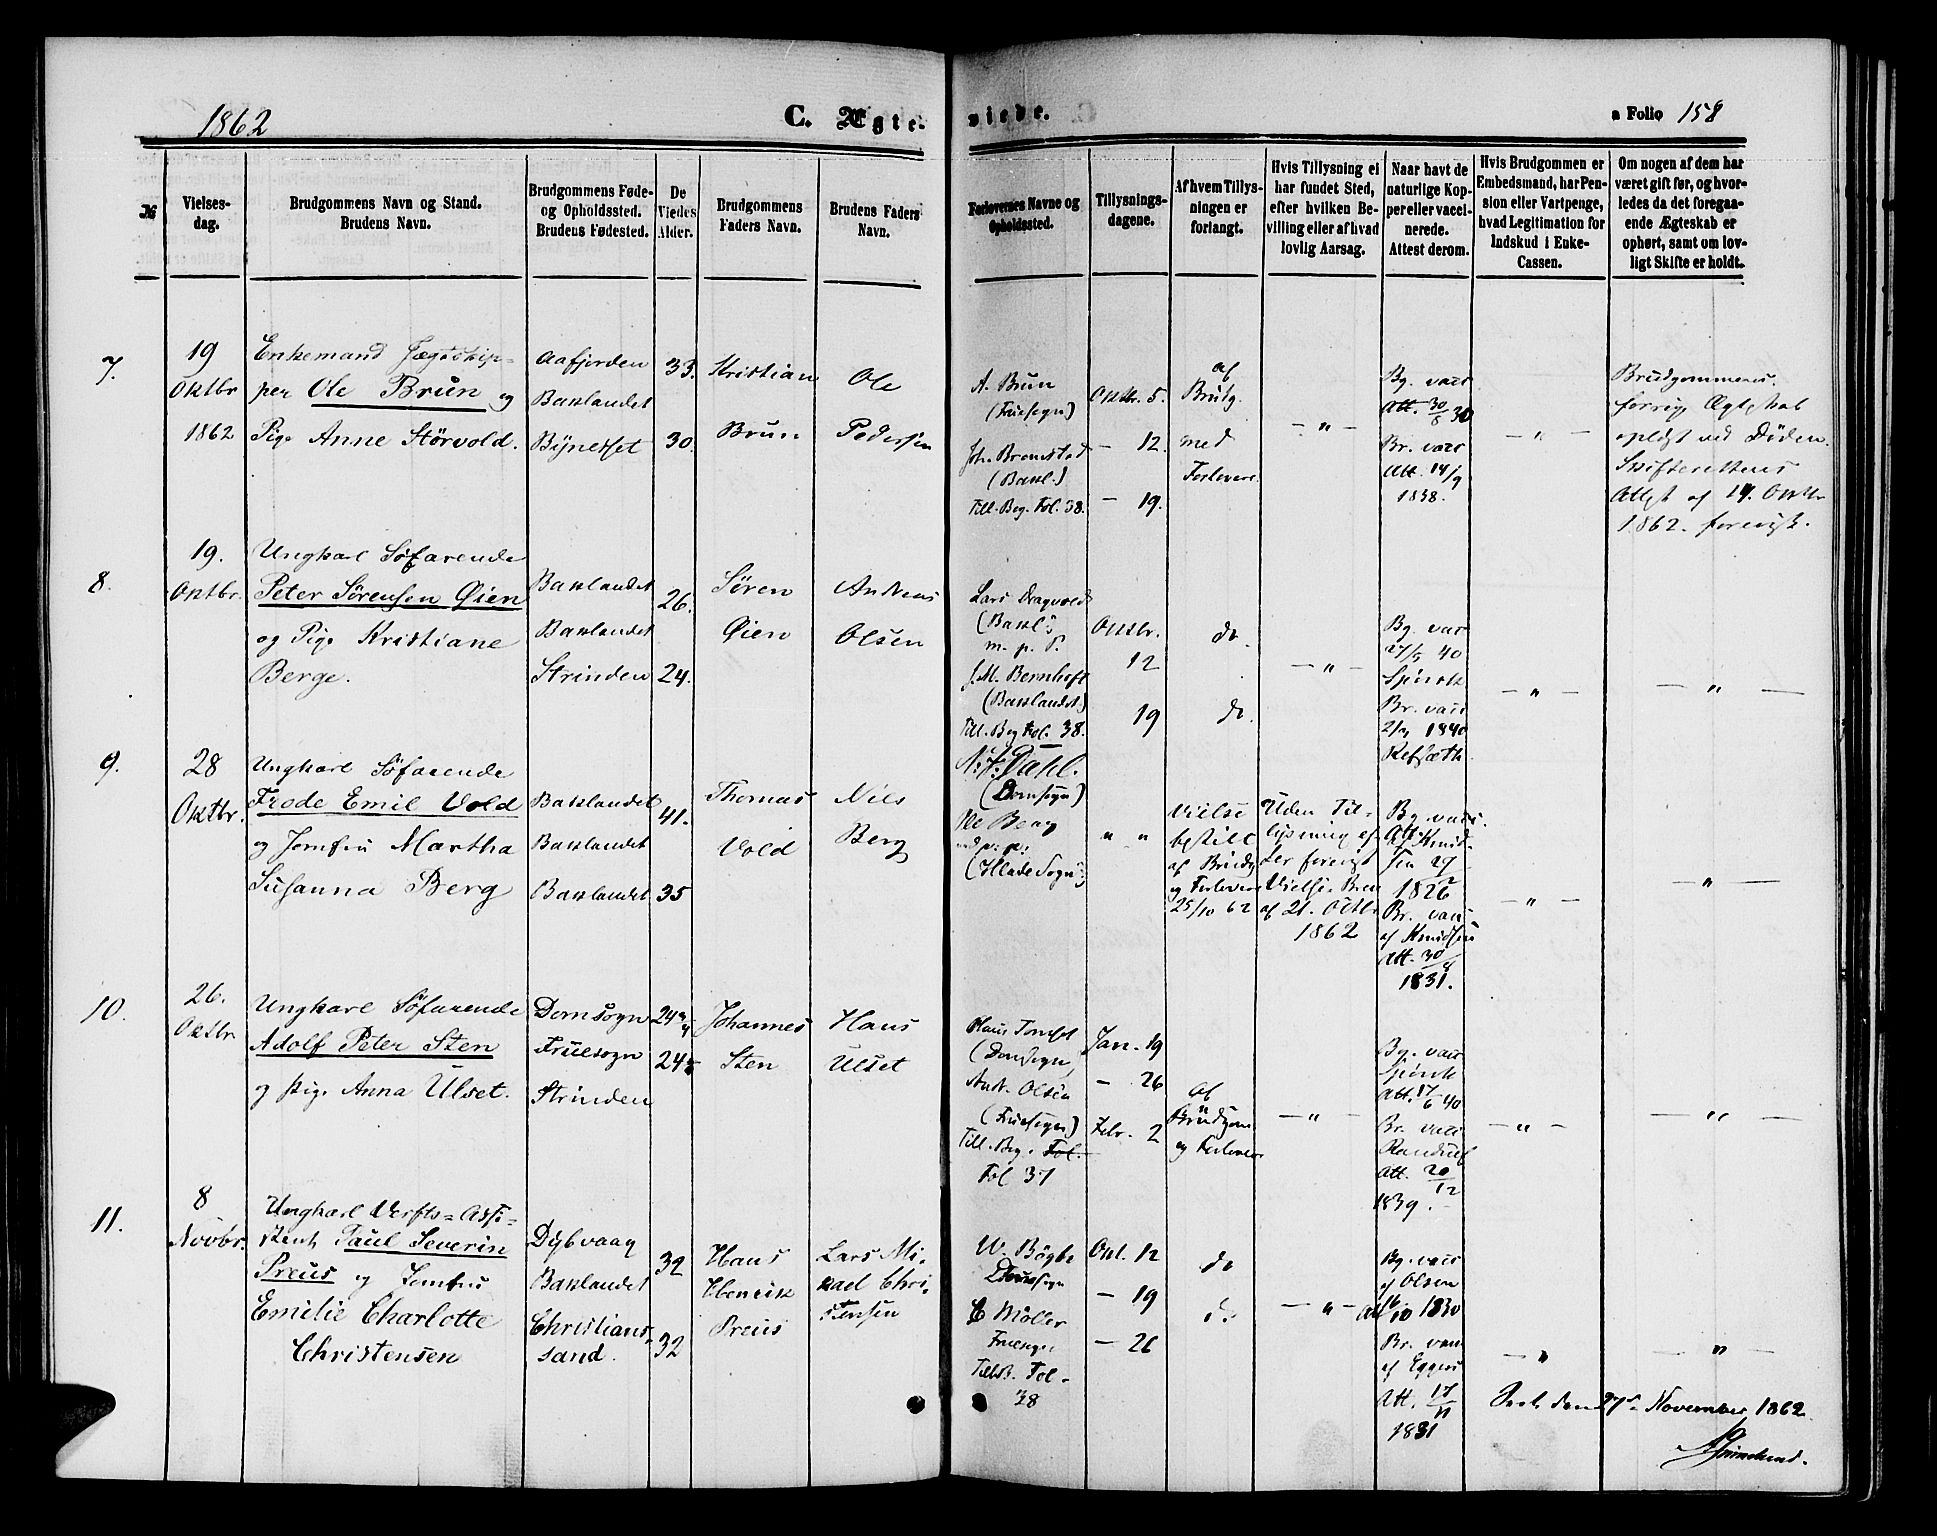 1862
C. Ægte-
viede.
a Folio 158
№
Vielses-
dag.
Brudgommens Navn og Stand.
Brudens Navn.
Brudgommens Føde-
og Opholdssted.
Brudens Fødested.
De
Viedes
Alder.
Brudgommens
Faders Navn.
Brudens Faders
Navn.
Forlovernes Navne og
Opholdssted.
Tillysnings-
dagene.
Af hvem Tillys-
ningen er
forlangt.
Hvis Tillysning ei
har fundet Sted,
efter hvilken Be-
villing eller af hvad
lovlig Aarsag.
Naar havt de
naturlige Kop-
per eller vacci-
nerede.
Attest derom.
Hvis Brudgommen er
Embedsmand, har Pen-
sion eller Vartpenge,
hvad Legitimation for
Indskud i Enke-
Cassen.
Om nogen af dem har
været gift før, og hvor-
ledes da det foregaa-
ende Ægteskab er
ophørt, samt om lov-
ligt Skifte er holdt.
7.
19
Oktbr
1862
Enkemand Jægtskip-
per Ole Brun og
Pige Anne Størvold.
Aafjorden
Baklandet
Bynesset
33.
30.
Kristian
Brun
Ole
Pedersen
A. Brun
(Fruesogn)
Joh. Bromstad
(Bakl.)
Till. Beg. Fol. 38.
Oktbr. 5.
— 12.
— 19.
af
Brudg.
med
Forlovere.
— " —
Bg. vacc
Att. 30/8 30
Br. vacc
Att. 14/9
1838.
— " —
Brudgommens
forrig Ægteskab
opløst ved Døden.
Skifterettens
Attest af 14. Oktbr
1862. forevist.
8.
19.
Oktbr.
Ungkarl Søfarende
Peter Sørensen Øien
og Pige Kristiane
Berge.
Baklandet
Baklandet
Strinden
26.
24.
Søren
Øien
Andreas
Olsen
Lars Dragvold
(Bakl.)
m. p. P.
J. M. Bernhoft
(Baklandet)
Till. Beg Fol. 38.
Oktbr.
12
19
do.
do.
— " —
Bg. vac
27/5 40
Br. vacc
1840
— " —
— " —
9.
28
Oktbr.
Ungkarl Søfarende
Frode Emil Vold
og Jomfru Martha
Susanna Berg
Baklandet
Baklandet
Baklandet
41.
35
Thomas
Vold
Nils
Berg
Dahl.
(Domsogn)
Ole Berg
(Hlade Sogn)
" "
Vielse
bestilt
af Brudg
og Forlovere
25/10 62
Uden Til-
lysning ef-
ter forevist
Vielse. Brev
af 21. Octbr
1862
Bg. vacc.
Att. Knud-
sen 27
1826
Br. vacc
af Knudsen
Att. 30
1831.
— " —
— " —
10.
26.
Oktbr
Ungkarl Søfarende
Adolf Peter Sten
og Pige Anna Ulset.
Domsogn
Fruesogn
Strinden
24
24
Johannes
Sten
Hans
Ulset
(Domsogn)
And. Olsen
(Fruesogn)
Till. Beg. Fol.
Fol 37
Jan. 19
— 26
Febr. 2
af
Brudgom
og Forlovere
— " —
Bg. vacc
Att. 17/6 40
Br. vacc
Att. 20/12
1839.
— " —
— " —
11.
8
Novbr.
Ungkarl Verfts-Assi-
stent Paul Severin
Preus og Jomfru
Emilie Charlotte
Christensen
Dybvaag
Baklandet
Christians-
sand.
32
32
Hans
Henrik
Preus
Lars Mi-
kael Chri-
stensen
Domsogn
C Møller
Fruesogn
Fol.
38
Okt. 12
— 19
— 26
do
do
— " —
Bg. vacc
af Olsen
Att 16/10 1830
Br. vacc
af Eggers
Att. 17/11
1831
— " —
— " —
den 27de November 1862.